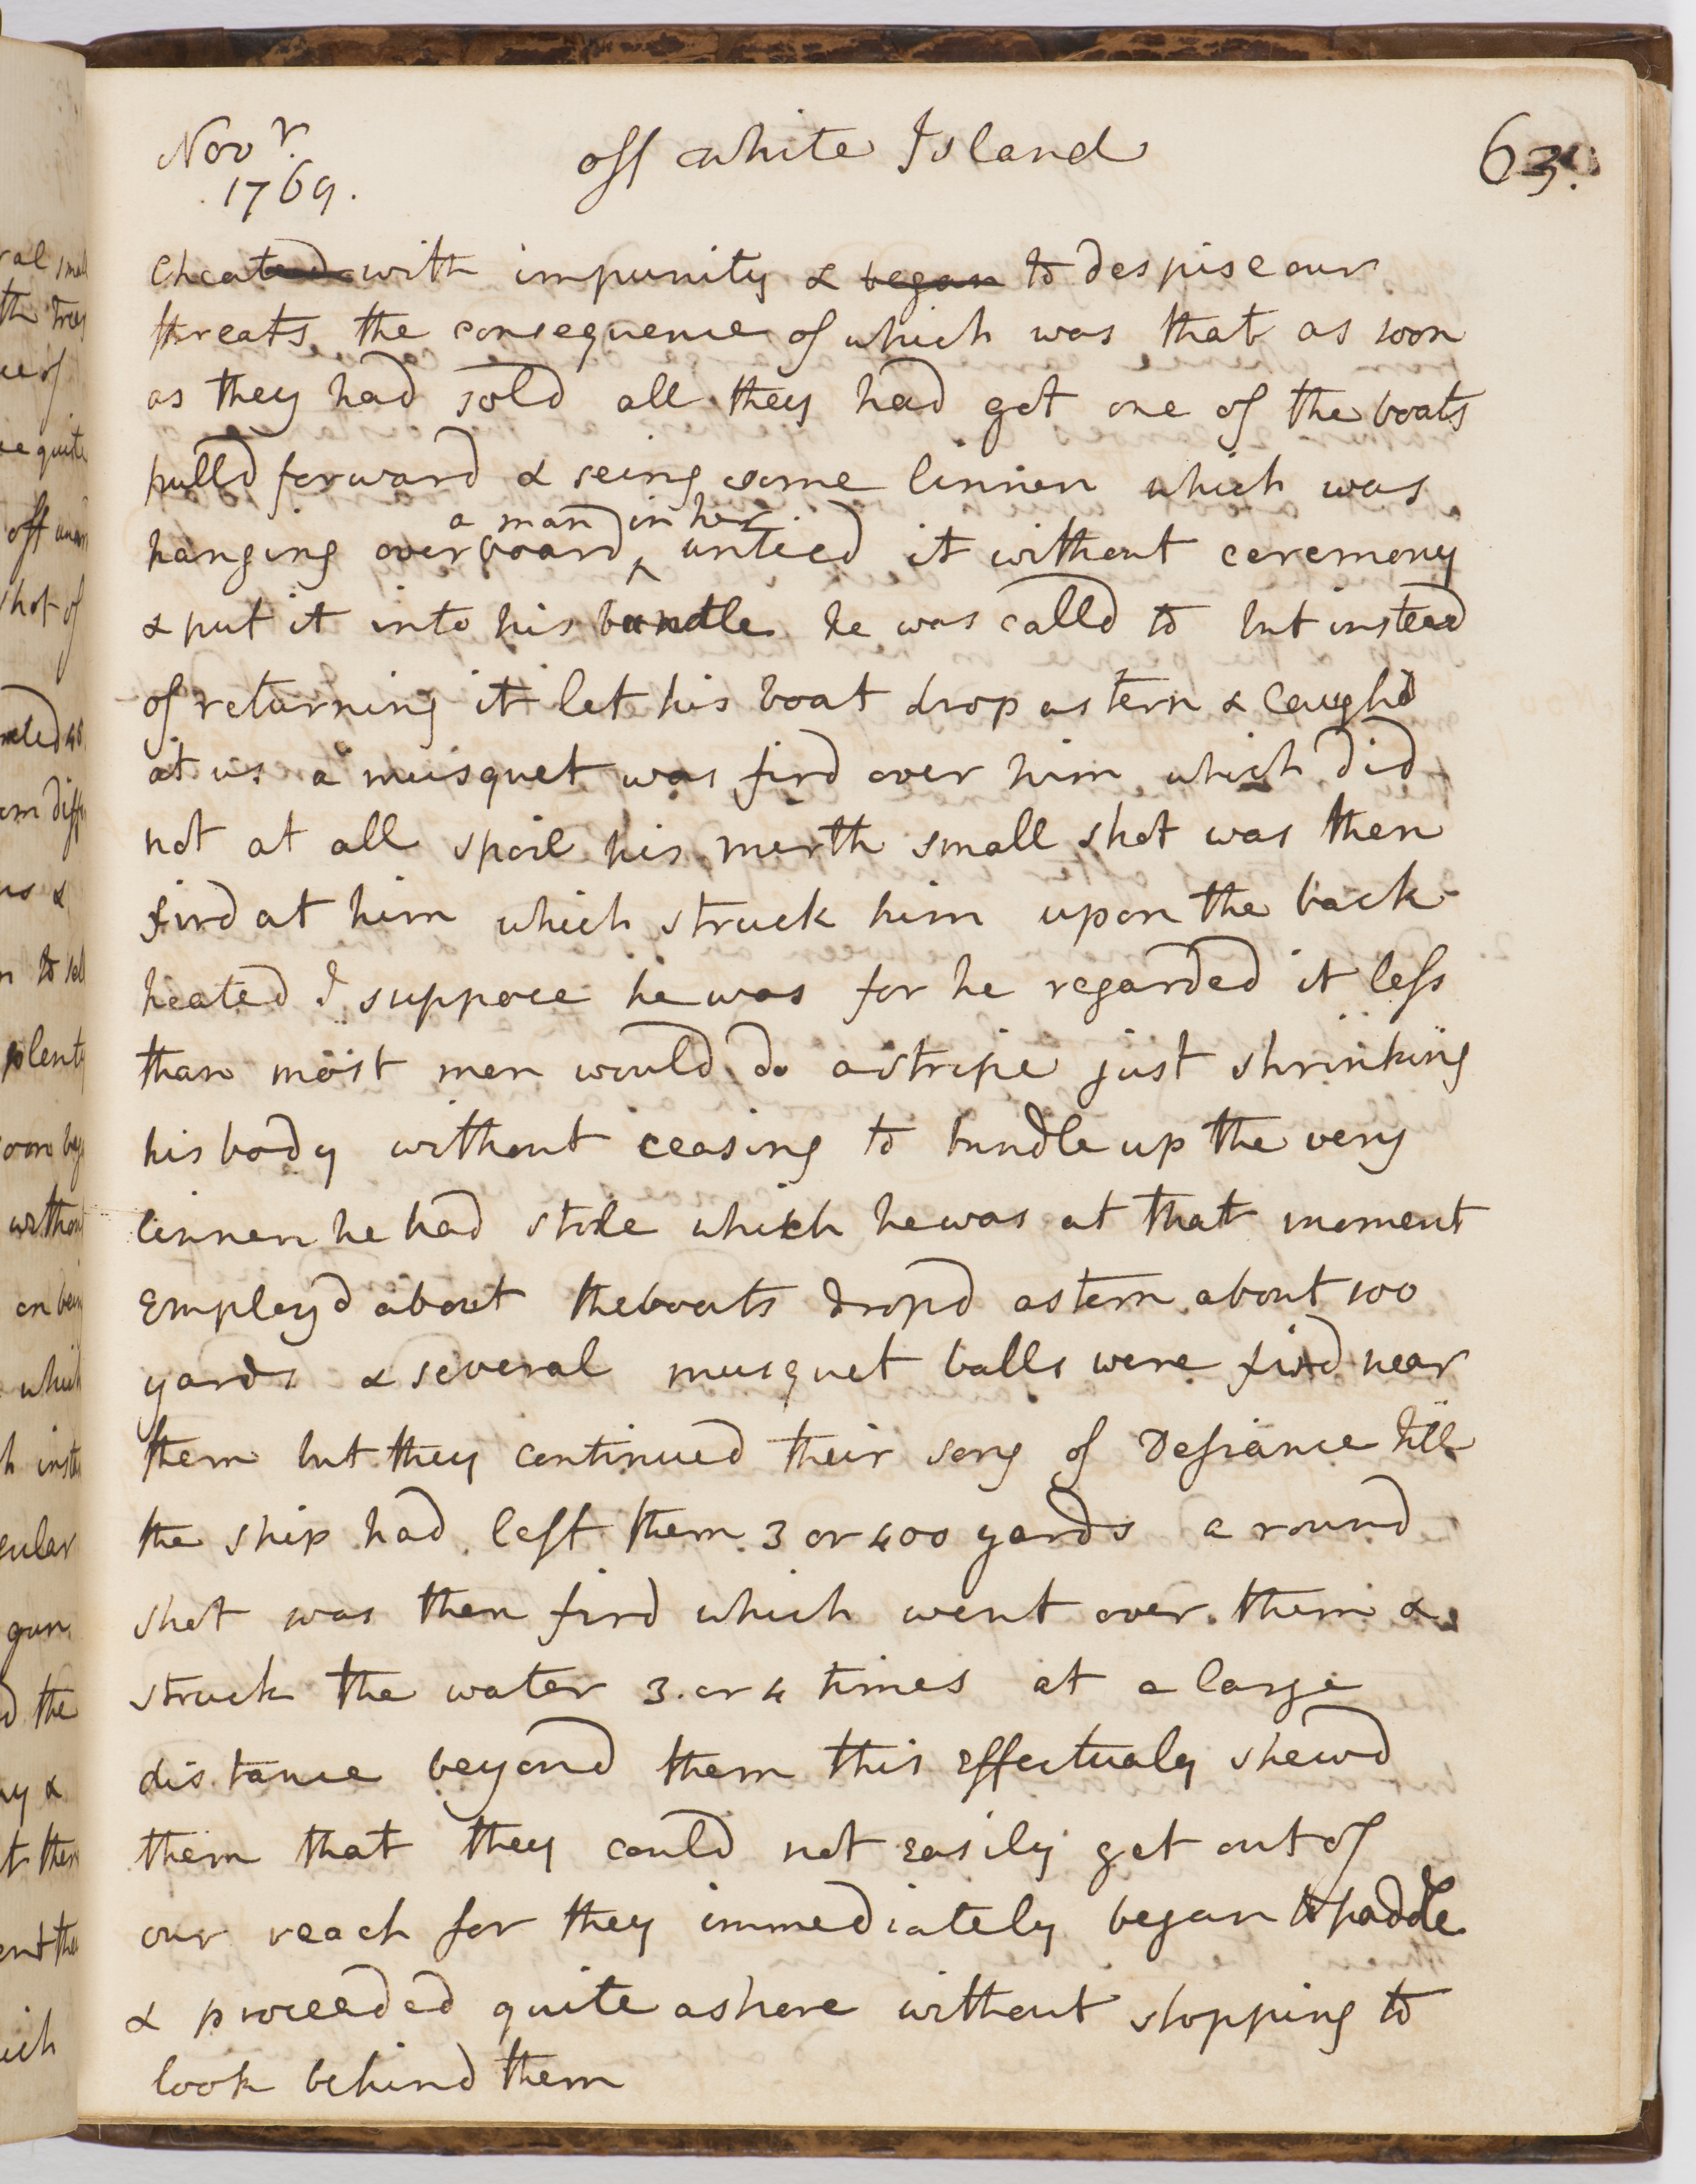 Novr.
1769.
off white Island
63.
cheated with impunity & began to despise our
threats the consequence of which was that as soon
as they had sold all they had got one of the boats
pulld forward & seing some linnen which was
a man in her
hanging overboard ^ untied it without ceremony
& put it into his bundle he was calld to but instead
of returning it let his boat drop astern & laughd
at us a musquet was fird over him which did
not at all spoil his mirth small shot was then
fird at him which struck him upon the back
heated I suppose he was for he regarded it less
than most men would do a stripe just shrinking
his body without ceasing to bundle up the very
linnen he had stole which he was at that moment
employd about the boats dropd astern about 100
yards & several musquet balls were fird near
them but they continued their song of Defiance till
the ship had left them 3 or 400 yards a round
shot was then fird which went over them &
struck the water 3. or 4 times at a large
distance beyond them this effectualy shewd
them that they could not easily get out of
our reach for they immediately began to paddle
& proceeded quite ashore without stopping to
look behind them